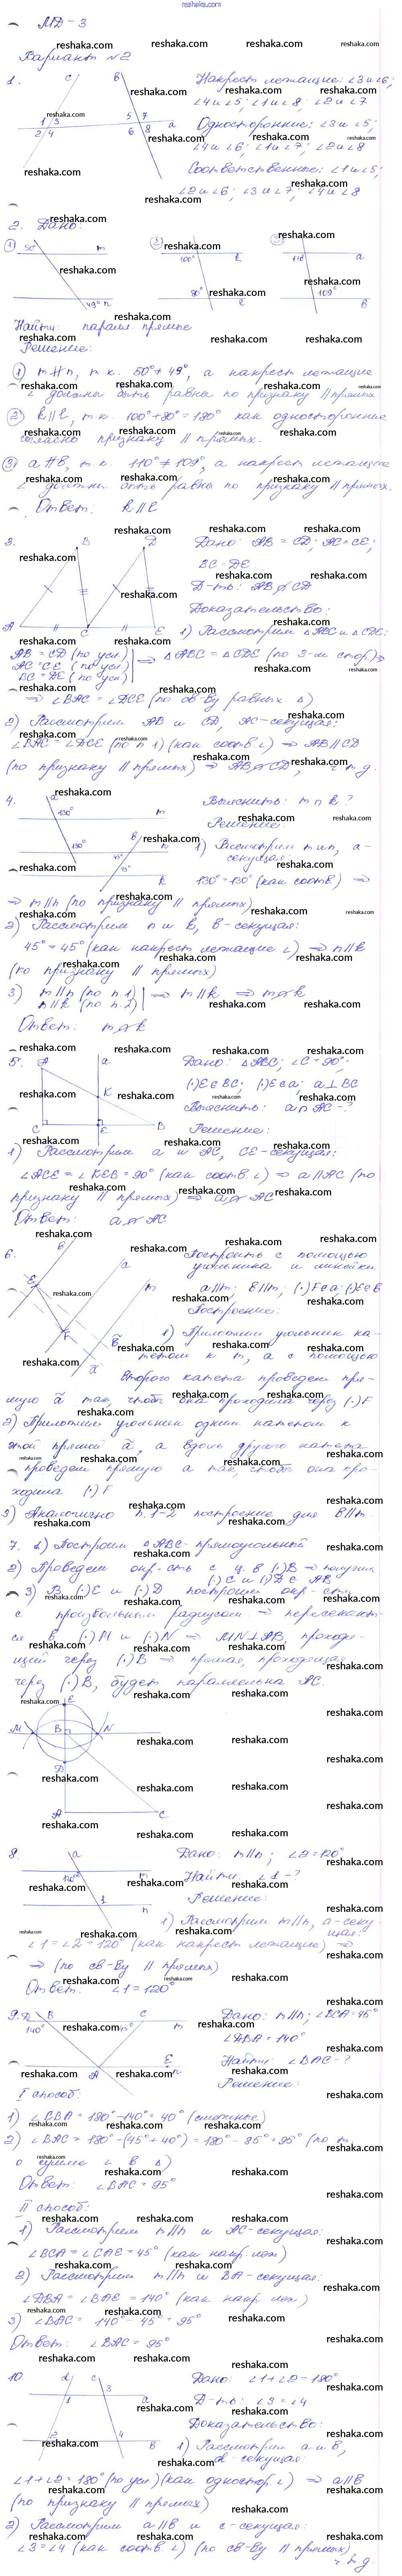 reshaka.com
МД-3
Вариант №2
1.
Накрест лежащие: ∠3 и ∠6;
∠4 и ∠5; ∠1 и ∠8, ∠2 и ∠7
Односторонние: ∠3 и ∠5;
∠4 и ∠6; ∠1 и ∠7; ∠2 и ∠8
Соответственные: ∠1 и ∠5;
∠2 и ∠6; ∠3 и ∠7; ∠4 и ∠8
2. Дано:
Найти: паралл. прямые
Решение:
1) m∦n, т.к. 50°≠49°, а накрест лежащие
∠ должны быть равны по признаку || прямых
2) k||l, т.к. 100°+80°=180° как односторонние
согласно признаку || прямых.
3) a∦b, т.к. 110°≠109°, а накрест лежащие
∠ должны быть равны по признаку || прямых.
Ответ: k||l
3.
Дано: AB = CD; AC = CE;
BC = DE
Д-ть: AB || CD
Доказательство:
1) Рассмотрим △ABC и △CDE:
AB = CD (по усл.)
AC = CE (по усл.)
BC = DE (по усл.)
⇒ △ABC = △CDE (по 3-м стор.) ⇒
⇒ ∠BAC = ∠DCE (по св-ву равных △)
2) Рассмотрим AB и CD, AC-секущая:
∠BAC = ∠DCE (по п. 1) (как соотв. ∠) ⇒ AB || CD
(по признаку || прямых) ⇒ AB || CD, ч.т.д.
4.
Выяснить: m ∩ k ?
Решение:
1) Рассмотрим m и n, a-
секущая:
130° = 130° (как соотв.) ⇒
⇒ m||n (по признаку || прямых)
2) Рассмотрим n и k, b-секущая:
45° = 45° (как накрест лежащие ∠) ⇒ n||k
(по признаку || прямых)
3) m||n (по п. 1)
n||k (по п. 2)
⇒ m||k ⇒ m∦k
Ответ:
5.
Дано: △ABC; ∠C = 90°;
(·)E∈BC; (·)E∈a; a⊥BC
Выяснить: a ∩ AC - ?
Решение:
1) Рассмотрим a и AC, CE-секущая:
∠ACE = ∠KEB = 90° (как соотв. ∠) ⇒ a||AC (по
признаку || прямых) ⇒
Ответ:
6.
Построить с помощью
угольника и линейки
a||m; b||m; (·)F∈a; (·)E∈b
Построение:
1) Приложим угольник ка-
тетом к m, а с помощью
второго катета проведем пря-
мую ã так, чтобы она проходила через (·)F
2) Приложим угольник одним катетом к
этой прямой ã, а вдоль другого катета
проведем прямую a так, чтобы она про-
ходила (·)F
3) Аналогично п. 1-2 построение для b||m.
7. 1) Построим △ABC-прямоугольный
2) Проведем окр-сть с ц. в (·)B ⇒ получим
(·)E и (·)D ∈ AB
3) В (·)E и (·)D построим окр-сти
с произвольным радиусом ⇒ пересекают-
ся в (·)M и (·)N ⇒ MN⊥AB, проходя-
щей через (·)B ⇒ прямая, проходящая
через (·)B, будет параллельна AC.
8.
Дано: m||n; ∠2 = 120°
Найти: ∠1 - ?
Решение:
1) Рассмотрим m||n, a-секу-
щая:
∠1 = ∠2 = 120° (как накрест лежащие) ⇒
⇒ (по св-ву || прямых)
Ответ: ∠1 = 120°
9.
Дано: m||n; ∠BCA = 45°
∠DBA = 140°
Найти: ∠BAC - ?
Решение:
I способ:
1) ∠CBA = 180° - 140° = 40° (смежные)
2) ∠BAC = 180° - (45° + 40°) = 180° - 85° = 95° (по т.
о сумме ∠ в △)
Ответ: ∠BAC = 95°
II способ:
1) Рассмотрим m||n и AC-секущая:
∠BCA = ∠CAE = 45° (как накр. леж)
2) Рассмотрим m||n и BA-секущая:
∠DBA = ∠BAE = 140° (как накр. леж)
3) ∠BAC = 140° - 45° = 95°
Ответ: ∠BAC = 95°
10.
Дано: ∠1 + ∠2 = 180°
Д-ть: ∠3 = ∠4
Доказательство:
1) Рассмотрим a и b,
d-секущая:
∠1 + ∠2 = 180° (по усл) (как одностор. ∠) ⇒ a||b
(по признаку || прямых)
2) Рассмотрим a||b и c-секущая:
∠3 = ∠4 (как соотв. ∠) (по св-ву || прямых)
ч.т.д.